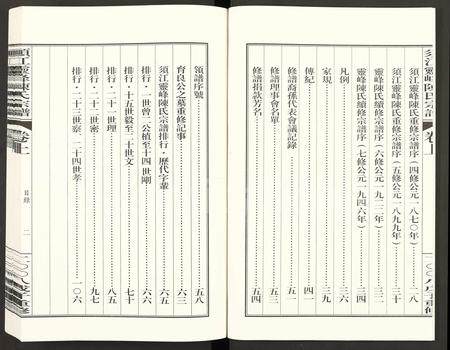 須江靈峰陳氏宗譜 卷上
須江靈峰陳氏重修宗譜序(四修公元一八七〇年)……二八
須江靈峰陳氏重修宗譜序(五修公元一八九九年)……三十
靈峰陳氏續修宗譜序(六修公元一九二二年)……三三
靈峰陳氏續修宗譜序(七修公元一九四六年)……三四
凡例……三六
家規……三九
傳紀……四一
修譜裔孫代表會議記錄……五一
修譜理事會名單……五三
修譜捐款芳名……五四
領譜序號……五八
育良公之墓重修記事……六三
須江靈峰陳氏宗譜排行·歷代字輩……六五
排行·一世曾二公植至十四世剛……六六
排行·十五世毅至二十世文……七七
排行·二十一世理……八五
排行·二十二世密……九七
排行·二十三世察、二十四世孝……一〇六
須江靈峰陳氏宗譜 卷上
目錄 二
二〇〇八戊子重修